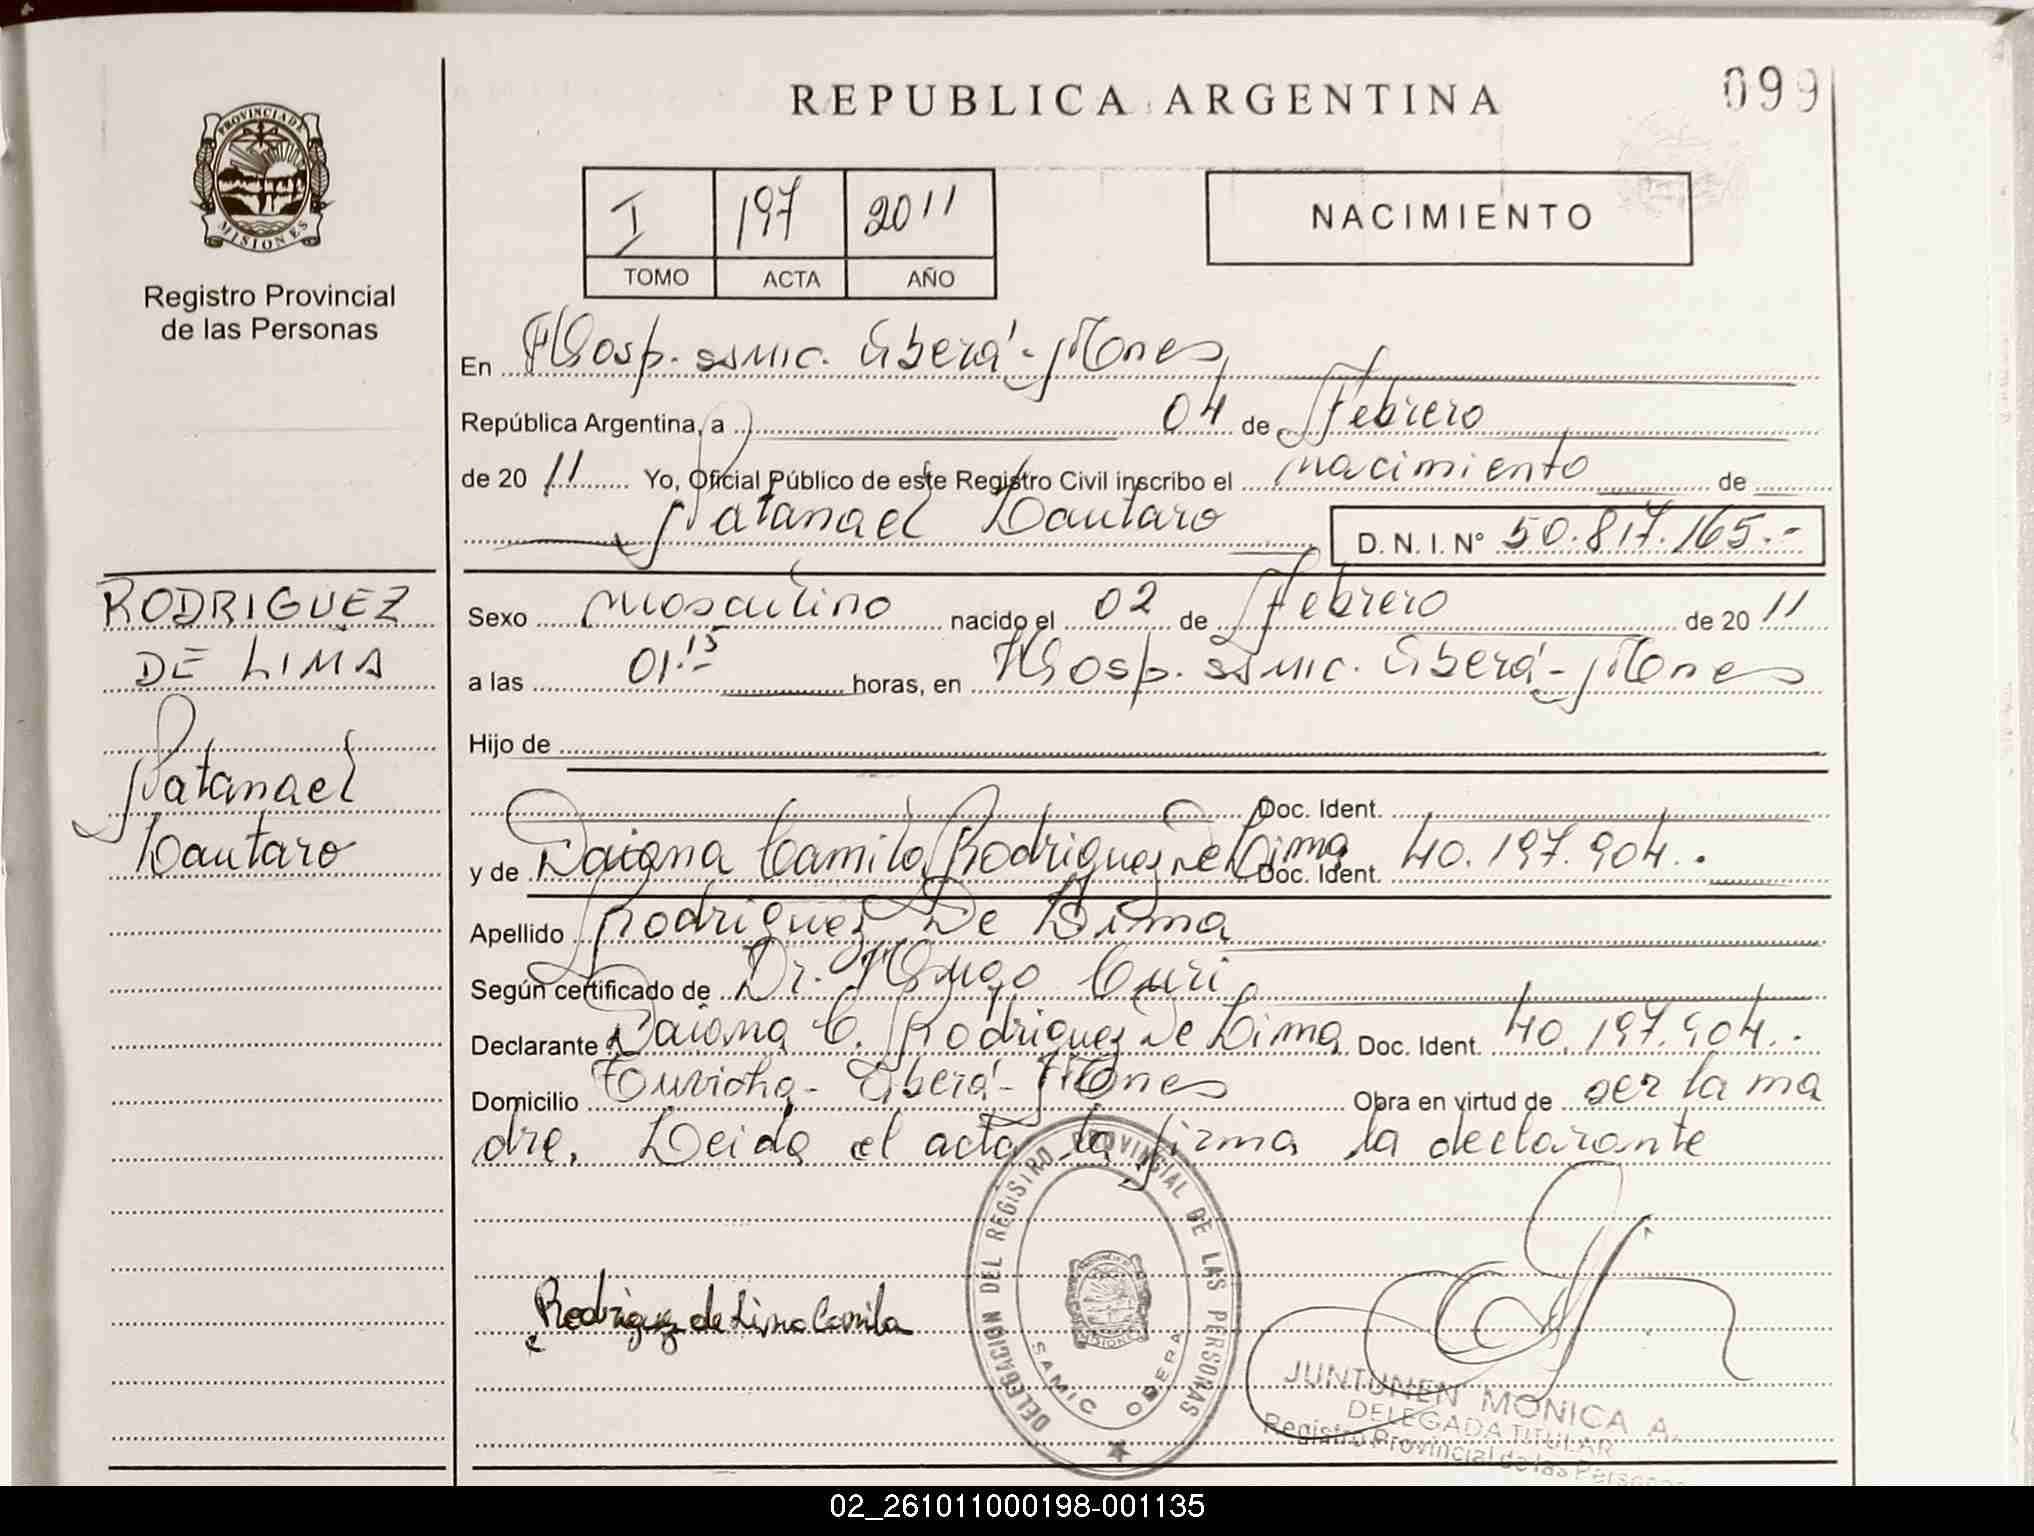 REPUBLICA ARGENTINA
099
PROVINCIA DE
MISIONES
Registro Provincial
de las Personas
I 197 2011
TOMO ACTA AÑO
NACIMIENTO
En Hosp. SAMIC. Oberá - Mnes
República Argentina, a 04 de Febrero
de 20 11 Yo, Oficial Público de este Registro Civil inscribo el nacimiento de
Natanael Lautaro D. N. I. N° 50.817.165.-
RODRIGUEZ
DE LIMA
Natanael
Lautaro
Sexo masculino nacido el 02 de Febrero de 20 11
a las 01.15 horas, en Hosp. SAMIC. Oberá - Mnes
Hijo de
Doc. Ident.
y de Daiana Camila Rodriguez De Lima Doc. Ident. 40.197.904.
Apellido Rodriguez De Lima
Según certificado de Dr. Hugo Curi
Declarante Daiana C. Rodriguez De Lima Doc. Ident. 40.197.904.
Domicilio Oberá - Mnes Obra en virtud de ser la ma
dre. Leida el acta la firma la declarante
Rodriguez de Lima Camila
DELEGACION DEL REGISTRO PROVINCIAL DE LAS PERSONAS
MISIONES
SAMIC OBERA
JUNTUNEN MONICA A.
DELEGADA TITULAR
Registro Provincial de las Personas
02_261011000198-001135